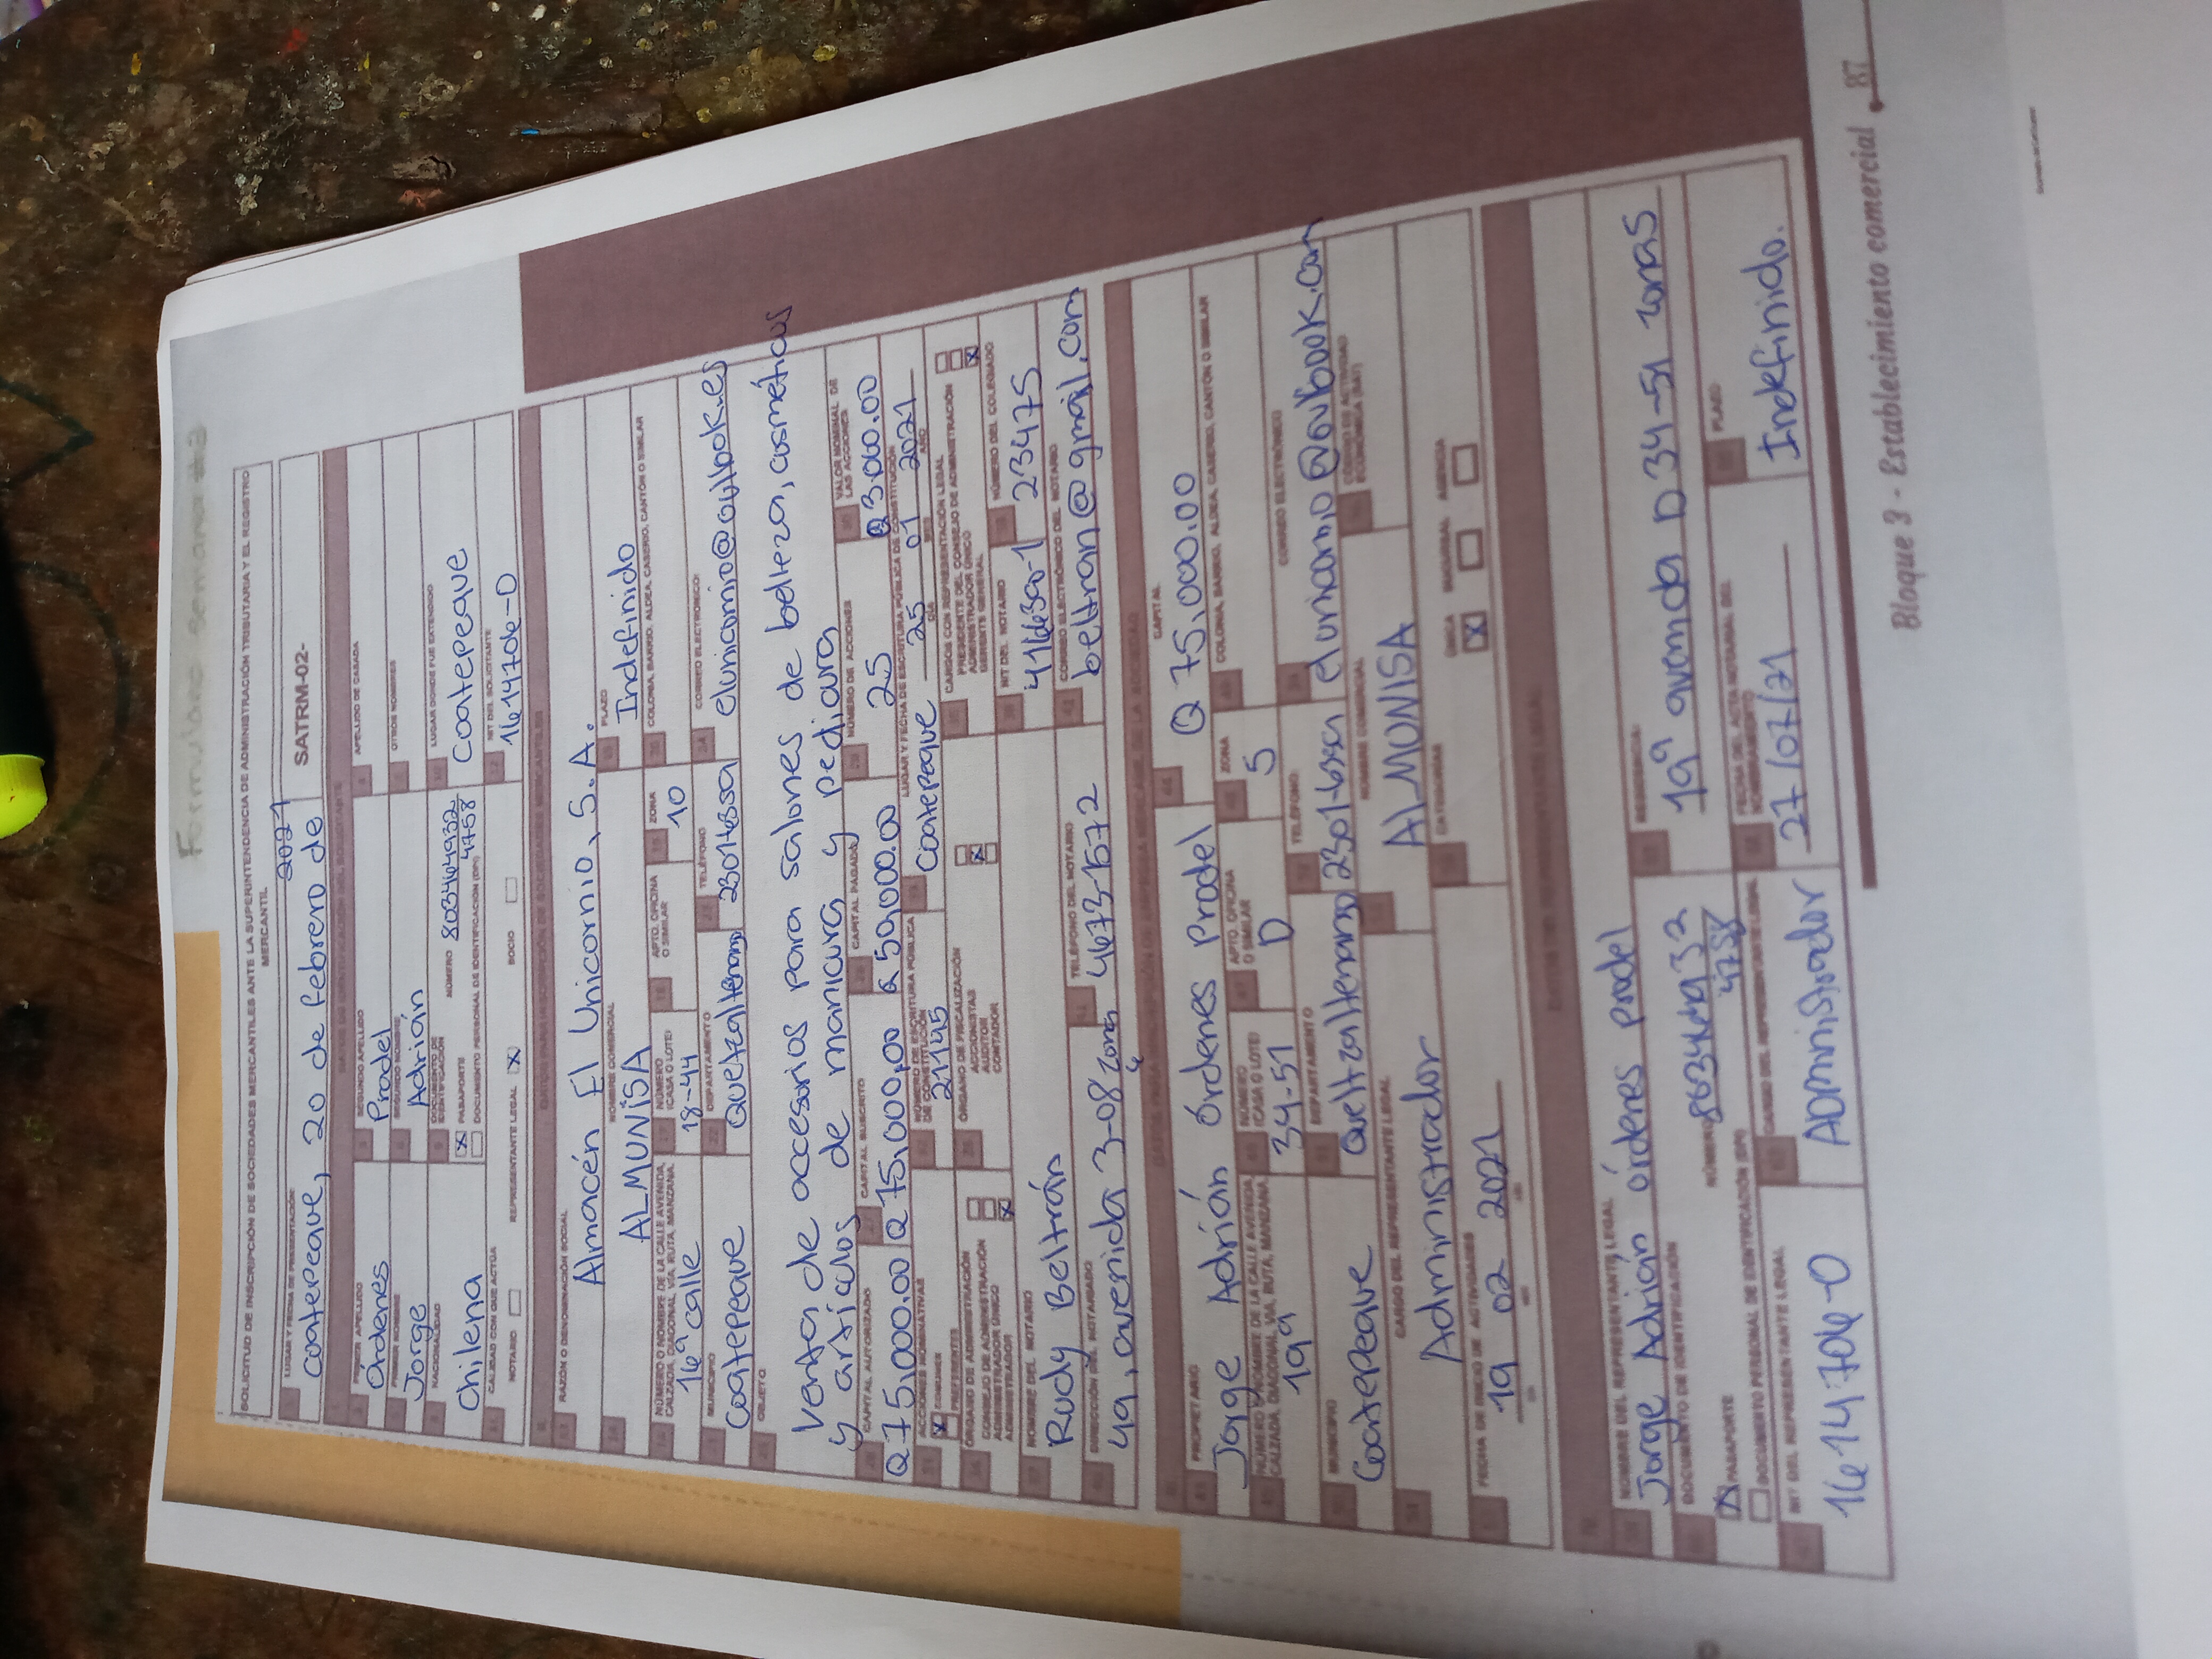 Formulario semana #2
SOLICITUD DE INSCRIPCIÓN DE SOCIEDADES MERCANTILES ANTE LA SUPERINTENDENCIA DE ADMINISTRACIÓN TRIBUTARIA Y EL REGISTRO
MERCANTIL
LUGAR Y FECHA DE PRESENTACIÓN:
Coatepeque, 20 de febrero de 2021
SATRM-02-
DATOS DE IDENTIFICACIÓN DEL SOLICITANTE
PRIMER APELLIDO SEGUNDO APELLIDO APELLIDO DE CASADA
Órdenes Pradel
PRIMER NOMBRE SEGUNDO NOMBRE OTROS NOMBRES
Jorge Adrián
NACIONALIDAD DOCUMENTO DE IDENTIFICACIÓN NÚMERO LUGAR DONDE FUE EXTENDIDO
Chilena PASAPORTE Coatepeque
DOCUMENTO PERSONAL DE IDENTIFICACIÓN (DPI) 4758
CALIDAD CON QUE ACTÚA NIT DEL SOLICITANTE
NOTARIO REPRESENTANTE LEGAL SOCIO
RAZÓN O DENOMINACIÓN SOCIAL PLAZO
Almacén El Unicornio, S.A. Indefinido
NOMBRE COMERCIAL
ALMUNISA
NÚMERO O NOMBRE DE LA CALLE AVENIDA, CALZADA, DIAGONAL, VÍA, RUTA, MANZANA NÚMERO (CASA O LOTE) APTO, OFICINA O SIMILAR ZONA COLONIA, BARRIO, ALDEA, CASERIO, CANTÓN O SIMILAR
16ª calle 18-44 10
MUNICIPIO DEPARTAMENTO TELÉFONO CORREO ELECTRONICO:
Coatepeque Quetzaltenango elunicornio@outlook.es
OBJETO
Venta de accesorios para salones de belleza, cosméticos
y artículos de manicura y pedicura
CAPITAL AUTORIZADO CAPITAL SUSCRITO CAPITAL PAGADO NÚMERO DE ACCIONES VALOR NOMINAL DE LAS ACCIONES
Q75,000.00 Q75,000.00 Q50,000.00 25 Q3,000.00
ACCIONES NOMINATIVAS NÚMERO DE ESCRITURA PÚBLICA DE CONSTITUCIÓN LUGAR Y FECHA DE ESCRITURA PÚBLICA DE CONSTITUCIÓN
Coatepeque 25 01 2021
DÍA MES AÑO
ÓRGANO DE ADMINISTRACIÓN ÓRGANO DE FISCALIZACIÓN CARGOS CON REPRESENTACIÓN LEGAL
CONSEJO DE ADMINISTRACIÓN ACCIONISTAS PRESIDENTE DEL CONSEJO DE ADMINISTRACIÓN
ADMINISTRADOR ÚNICO AUDITOR ADMINISTRADOR ÚNICO
ADMINISTRADOR CONTADOR GERENTE GENERAL
NOMBRE DEL NOTARIO NIT DEL NOTARIO NÚMERO DEL COLEGIADO
Rudy Beltrán 23475
DIRECCIÓN DEL NOTARIADO TELÉFONO DEL NOTARIO CORREO ELECTRÓNICO DEL NOTARIO
4a. avenida 3-08 zona 4673-1572 beltran@gmail.com
PROPIETARIO CAPITAL
Jorge Adrián Órdenes Pradel Q 75,000.00
NÚMERO O NOMBRE DE LA CALLE AVENIDA, CALZADA, DIAGONAL, VÍA, RUTA, MANZANA NÚMERO (CASA O LOTE) APTO, OFICINA O SIMILAR ZONA COLONIA, BARRIO, ALDEA, CASERIO, CANTÓN O SIMILAR
19ª 34-51 D 5
MUNICIPIO DEPARTAMENTO TELÉFONO CORREO ELECTRÓNICO
Coatepeque Quetzaltenango
CARGO DEL REPRESENTANTE LEGAL NOMBRE COMERCIAL CÓDIGO DE ACTIVIDAD ECONÓMICA (SAT)
Administrador ALMUNISA
FECHA DE INICIO DE ACTIVIDADES CATEGORÍA
19 02 2021 ÚNICA SUCURSAL AGENCIA
NOMBRE DEL REPRESENTANTE LEGAL RESIDENCIA
Jorge Adrián órdenes pradel 19ª avenida D 34-51 zona5
DOCUMENTO DE IDENTIFICACIÓN NÚMERO FECHA DEL ACTA NOTARIAL DEL NOMBRAMIENTO PLAZO
PASAPORTE 4758 27/07/21 Indefinido.
DOCUMENTO PERSONAL DE IDENTIFICACIÓN (DPI)
NIT DEL REPRESENTANTE LEGAL CARGO DEL REPRESENTANTE LEGAL
Administrador
Bloque 3 - Establecimiento comercial 87